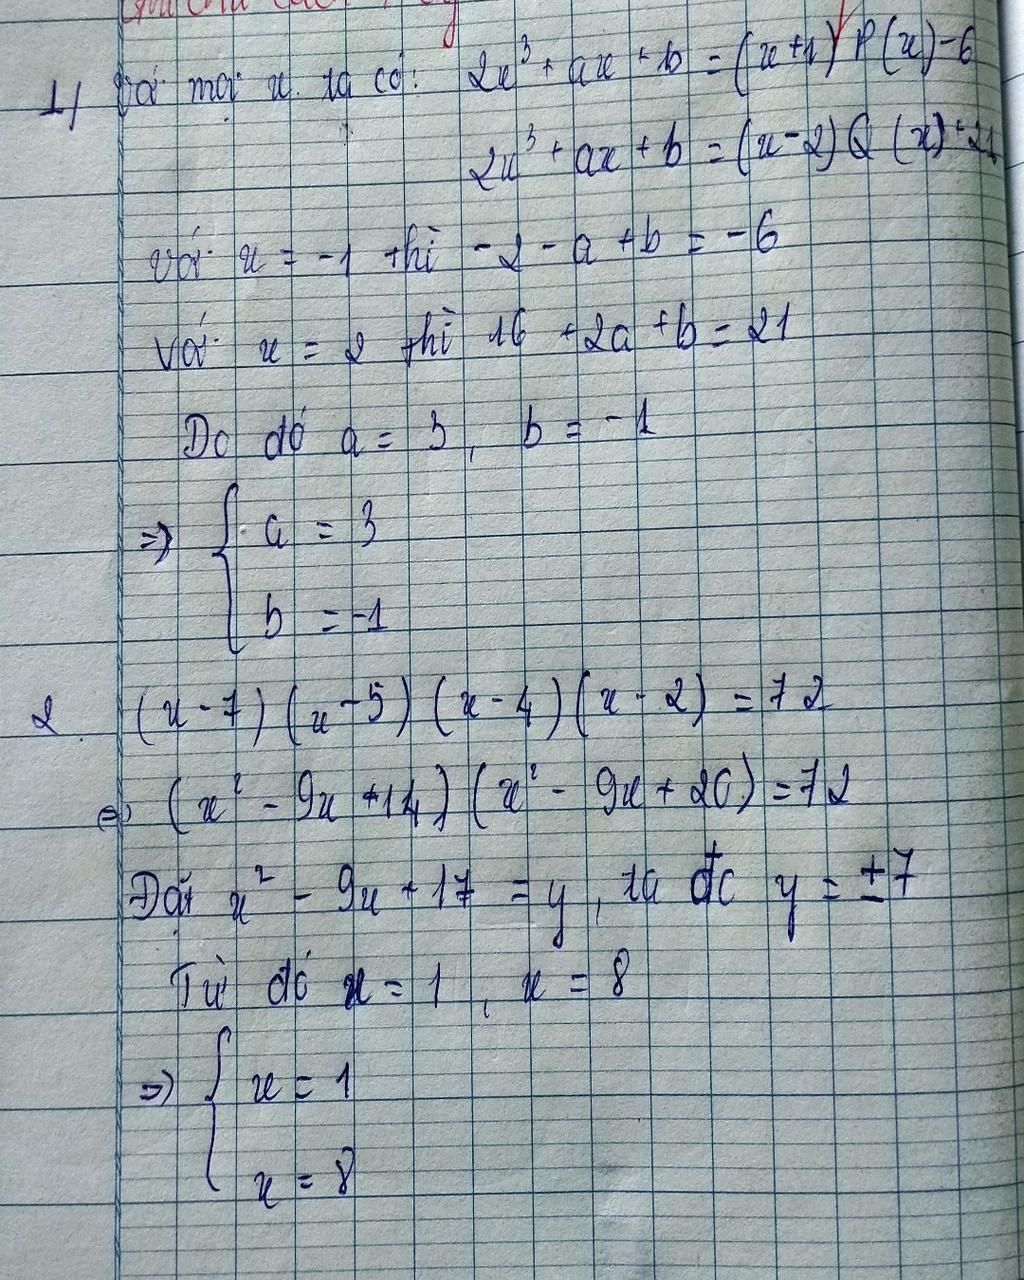 1) Với mọi x ta có: 2x³ + ax + b = (x+1) P(x) - 6
2x³ + ax + b = (x-2) Q (x) + 21
Với x = -1 thì -2 - a + b = -6
Với x = 2 thì 16 + 2a + b = 21
Do đó a = 3, b = -1
=> { a = 3
b = -1
2. (x-7)(x-5)(x-4)(x-2) = 72
<=> (x² - 9x + 14)(x² - 9x + 20) = 72
Đặt x² - 9x + 17 = y, ta đc y = ±7
Từ đó x = 1, x = 8
=> { x = 1
x = 8